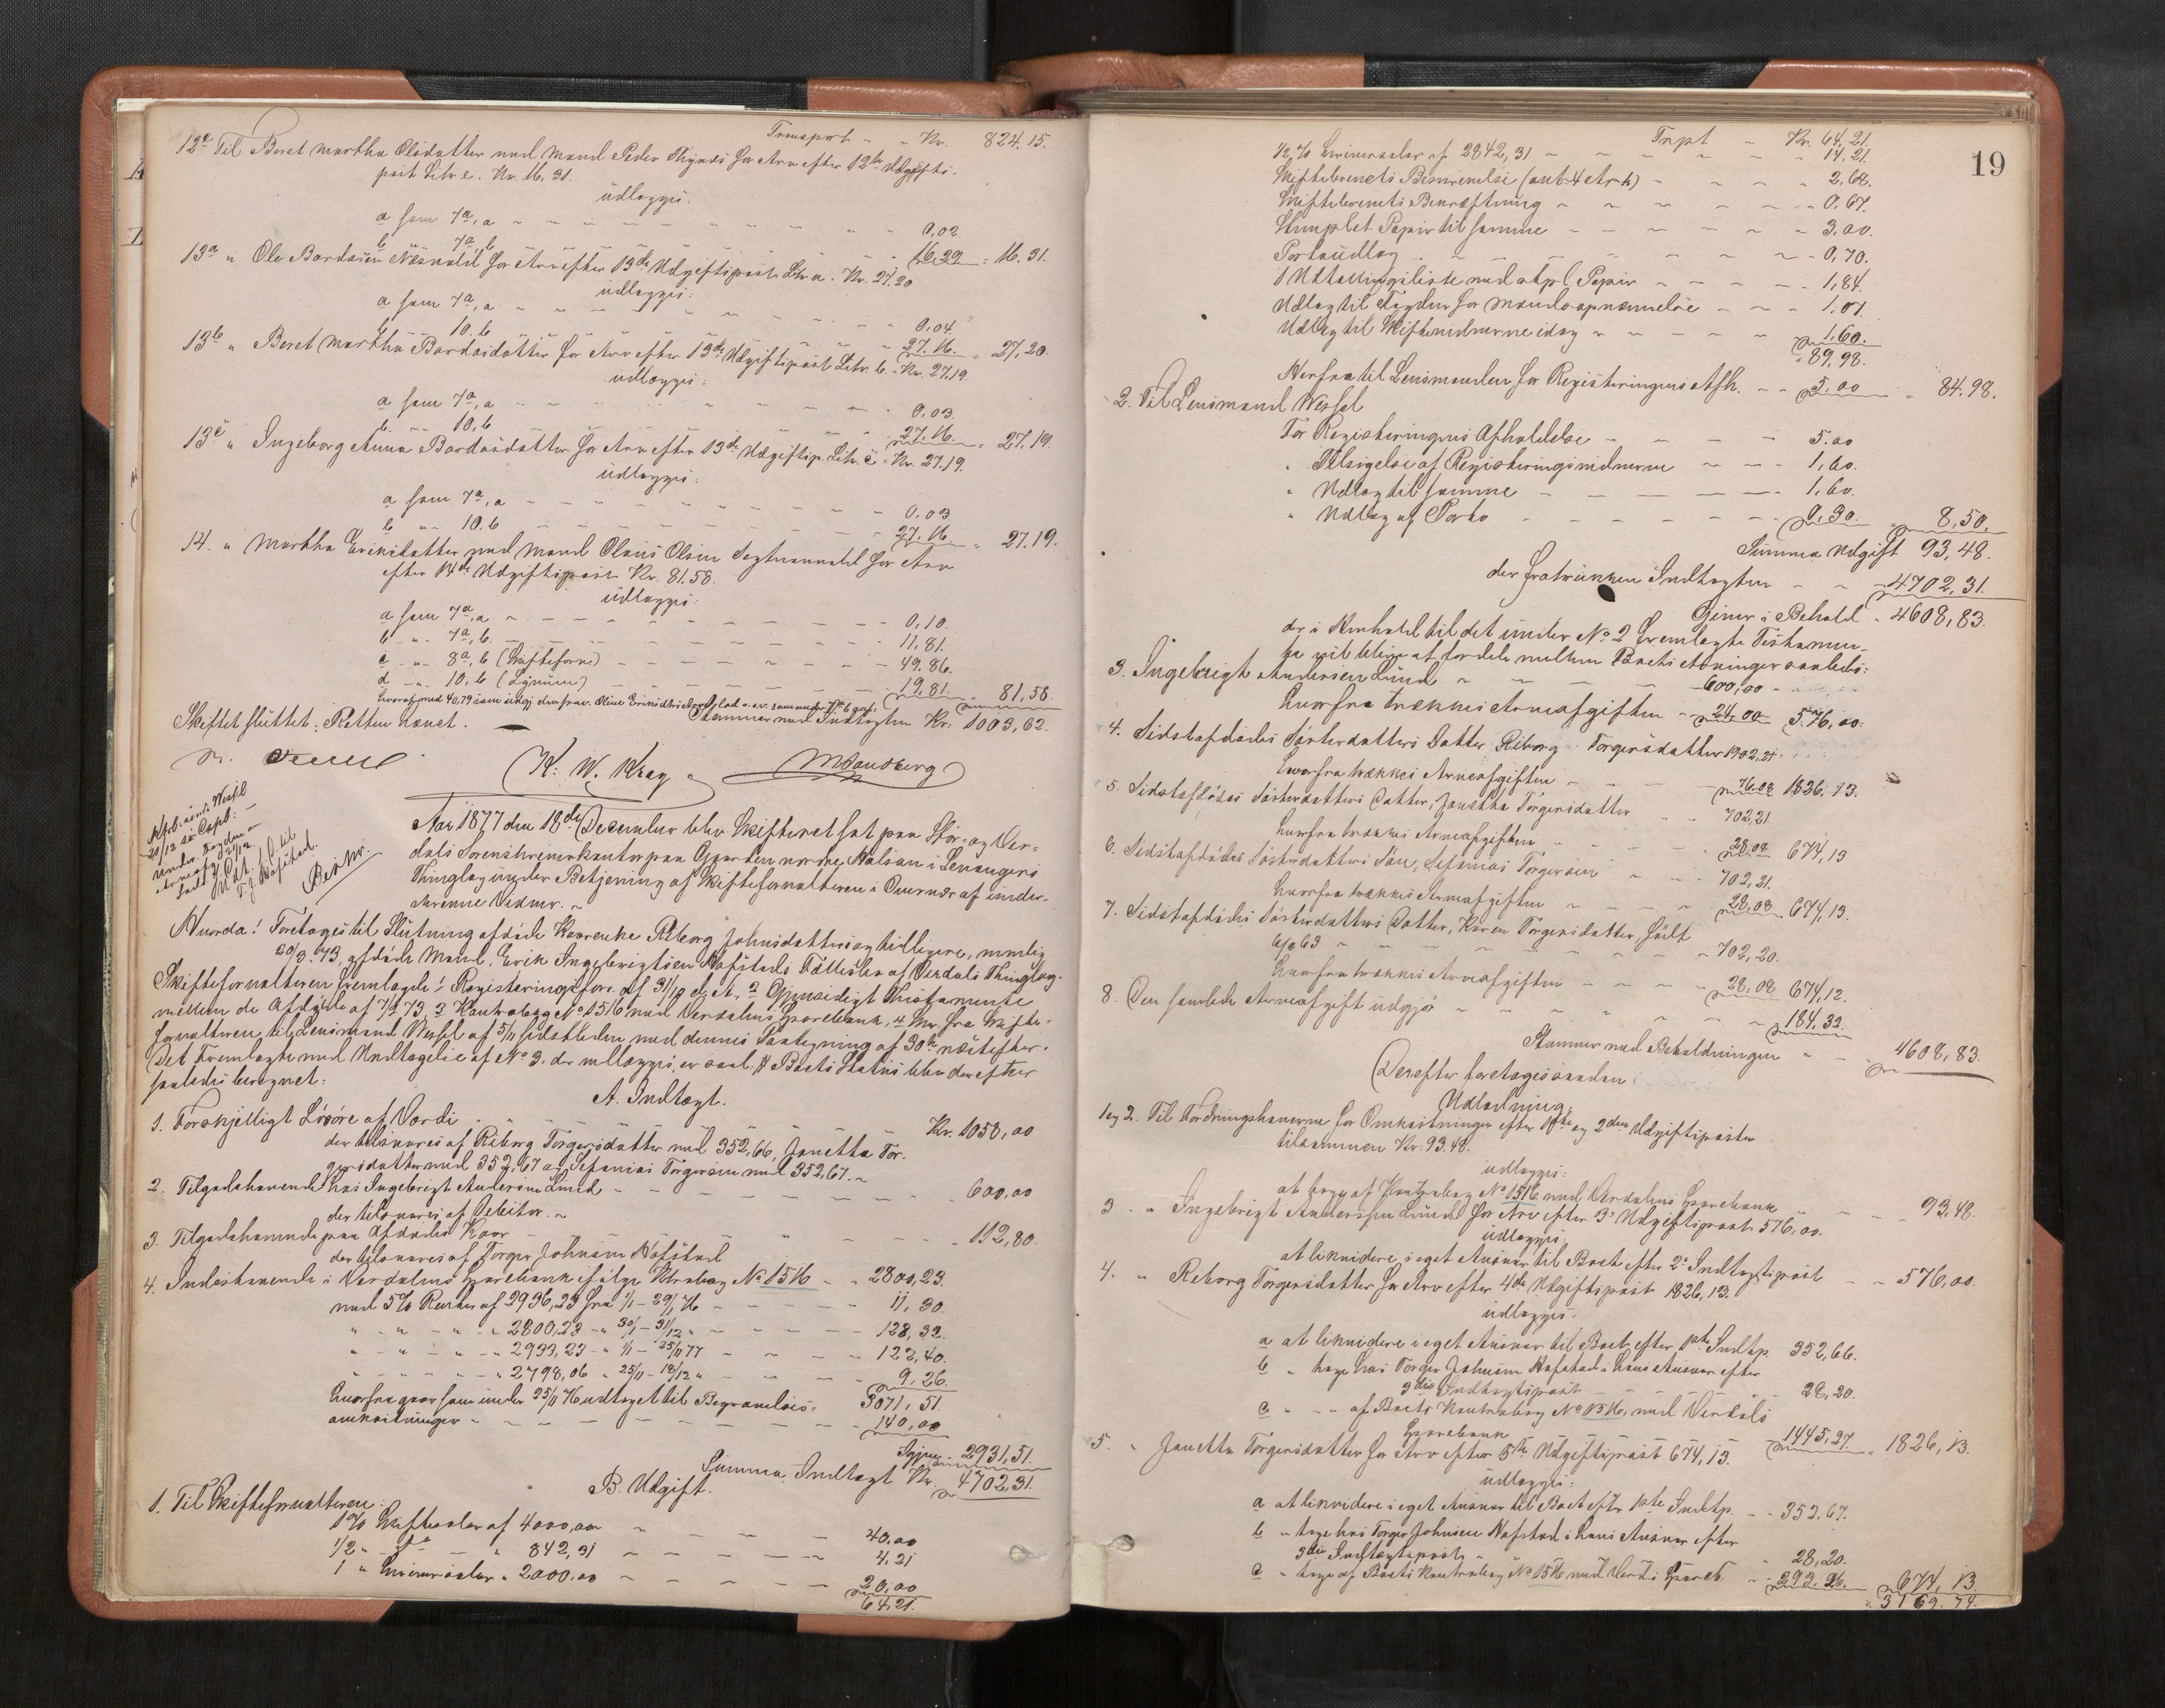 Transport - " Kr. 824.15.
12e Til Beret Martha Olsdatter med Mand Peder Thynæs for Arv efter 12te Udgifts-
post Litr e. Kr. 16.31.
udlægges:
a som 7a, a - - - - - 0,02.
b " 7a, b - - - - - 16,29 = 16.31.
13a " Ole Bardosen Næsvold for Arv efter 13de Udgiftspost Litr. a. Kr. 27.20
udlægges:
a som 7a, a - - - - - 0,04.
b 10.b - - - - - 27.16. = 27,20.
13b " Beret Martha Bardosdatter for Arv efter 13de Udgiftspost Litr. b. Kr. 27.19.
udlægges:
a som 7a, a - - - - - 0,03.
b. " 10,b - - - - - 27.16. = 27.19.
13c " Ingeborg Anna Bardosdatter for Arv efter 13de Udgiftsp. Litr. c. Kr. 27.19.
udlægges:
a som 7a, a - - - - - 0,03
b " 10.b - - - - - 27.16. = 27.19.
14. " Martha Eriksdatter med Mand Olaus Olsen for Arv
efter 14de Udgiftspost Kr. 81.58.
udlægges:
a som 7a, a - - - - - 0,10.
b " 7a, b. - - - - - 11,81.
c " 8a, b (Skifteforv) - - - - - 49.86.
d " 10,b ( ) - - - - - 19,81. = 81,58.
Stemmer med Indtægten Kr. 1003,62.
Skiftet sluttet. Retten hævet.
K. W. Krag. MSandberg
Aar 1877 den 18de December blev Skifteret sat paa Stør- og Ver-
dals Sorenskriverkontor paa Gaarden nordre Halsan i Levangers
Thinglag under Betjening af Skifteforvalteren i Overvær af under-
skrevne Vidner. -
Hvorda! Foretoges til Slutning afdøde Kaarenke Riborg Johnsdatters og tidligere, nemlig
20/3. 73, afdøde Mand, Erik Ingebrigtsen Hofstads Fællesbo af Verdals Thinglag.
Skifteforvalteren fremlagde 1 Registeringsforr. af 31/10 d. A. 2 Gjensidigt Testamente
mellem de Afdøde af 7/2 73, 3 Kontrabog No 1516 med Verdalens Sparebank, 4 Skr. fra Skifte-
forvalteren til Lensmand Wessel af 5/11 sidstleden med dennes Paategning af 30te næstefter.
Det Fremlagte med Undtagelse af No 3. der udlægges, er saal: # Boets Status blev derefter
saaledes beregnet:
A. Indtægt.
1. Forskjelligt Løsøre af Værdi - - - Kr. 1058,00
der tilsvares af Riborg Torgersdatter med 352,66, Janetta Tor-
gersdatter med 352,67 og Sefanias Torgersen med 352,67. -
2. Tilgodehavende hos Ingebrigt Andersen Lund - - - 600,00
der tilsvares af Debitor. -
3. Tilgodehavende paa Afdødes Kaar - - - 112,80.
der tilsvares af Torger Johnsen Hofstad
4. Indestaaende i Verdalens Sparebank ifølge Ktrabog No 1516 - " 2800,23.
med 5% Renter af 2936,23 fra 1/1 - 29/1 76 - - - 11,30.
" - " - " - " 2800,23 - " 30/1 - 31/12 " - - - 128,32.
" - " - " - " 2933,23 - " 1/1 - 25/11 77 - - - 122,40.
" - " - " - " 2798,06 " 25/11 - 18/12 " - - - 9,26.
3071,51.
hvorfra gaar som under 25/11 76 udtaget til Begravelses-
omkostninger - - - 140,00
Igjen 2931,51.
Summa Indtægt Kr. 4702,31.
B. Udgift.
1. Til Skifteforvalteren:
1% Skiftesalær af 4000,00 - - - 40,00
1/2 " - " 842,31 - - - 4,21
1 " Skriversalær " 2000.00 - - - 20,00
64,21.
19
Trpt - Kr. 64,21.
1/2 % Skriversalær af 2842,31 - - - 14.21.
Skiftebrevets Beskrivelse (ant 4 Ark) - - - 2,68.
Skiftebrevets Bekræftning - - - 0,67.
Stemplet Papir til samme - - - 3.00.
Portoudlæg - - - 0,70.
1 Udtællingsliste med stpl. Papir - - - 1,84.
Udlæg til Fogden for Mændsopnævnelse - - - 1,07.
Udlæg til Skiftevidnerne idag - - - 1.60.
89,98.
Herfra til Lensmanden for Registeringens Afh. - - 5,00 = 84.98.
2. Til Lensmand Wessel
For Registeringens Afholdelse - - - 5.00
" Tilsigelse af Registeringsvidnerne - - - 1,60.
" Udlæg til samme - - - 1,60.
" Udlæg af Porto - - - 0,30. 8,50.
Summa Udgift 93,48.
der fratrukken Indtægten - - 4702,31.
Giver i Behold - 4608,83.
der i Henhold til det under No 2 fremlagte Testamen-
te vil blive at fordele mellem Boets Arvinger saaledes:
3. Ingebrigt Andersen Lund - - - 600,00 -
hvorfra trækkes Arveafgiften - 24,00 576,00.
4. Sidstafdødes Søsterdatters Datter Riborg Torgersdatter 1902,21.
hvorfra trækkes Arveafgiften - - - 76.08 1826.13.
5. Sidstafdødes Søsterdatters Datter, Janetta Torgersdatter - - 702,21
hvorfra trækkes Arveafgiften - - - 28.08 674,13
6. Sidstafdødes Søsterdatters Søn, Sefanias Torgersen - - 702,21.
hvorfra trækkes Arveafgiften - - - 28,08 674,13.
7. Sidstafdødes Søsterdatters Datter, Karen Torgersdatter, født
6/9 63 - - - 702,20.
hvorfra trækkes Arveafgiften - - - 28,08 674,12.
8. Den samlede Arveafgift udgjør - - - 184,32
Stemmer med Beholdningen - - 4608,83.
Derefter foretoges saadan
Udlodning.
1 og 2. Til Fordringshaverne for Omkostninger efter 1ste og 2den Udgiftsposter
tilsammen Kr. 93.48.
udlægges:
at tage af Kontrabog No 1516 med Verdalens Sparebank - - - 93,48.
3. " Ingebrigt Andersen Lund for Arv efter 3die Udgiftspost 576,00.
udlægges:
at likvidere i eget Ansvar til Boet efter 2. Indtægtspost - - 576,00.
4. " Riborg Torgersdatter for Arv efter 4de Udgiftspost 1826,13.
udlægges:
a at likvidere i eget Ansvar til Boet efter 1ste Indtp. 352,66.
b " tage hos Torger Johnsen Hofstad i hans Ansvar efter
3die Indtægtspost - - 28,20.
c " - - af Boets Kontrabog No 1516, med Verdals
Sparebank - - 1445,27 = 1826,13.
5. " Janetta Torgersdatter for Arv efter 5te Udgiftspost 674,13.
udlægges:
a at likvidere i eget Ansvar til Boet efter 1ste Indtp. - - 352.67.
b " tage hos Torger Johnsen Hofstad i hans Ansvar efter
3die Indtægtspost - - 28,20.
c " tage af Boets Kontrabog No 1516 med Verd.s Spareb. - - 293.26. 674,13.
3169.74.